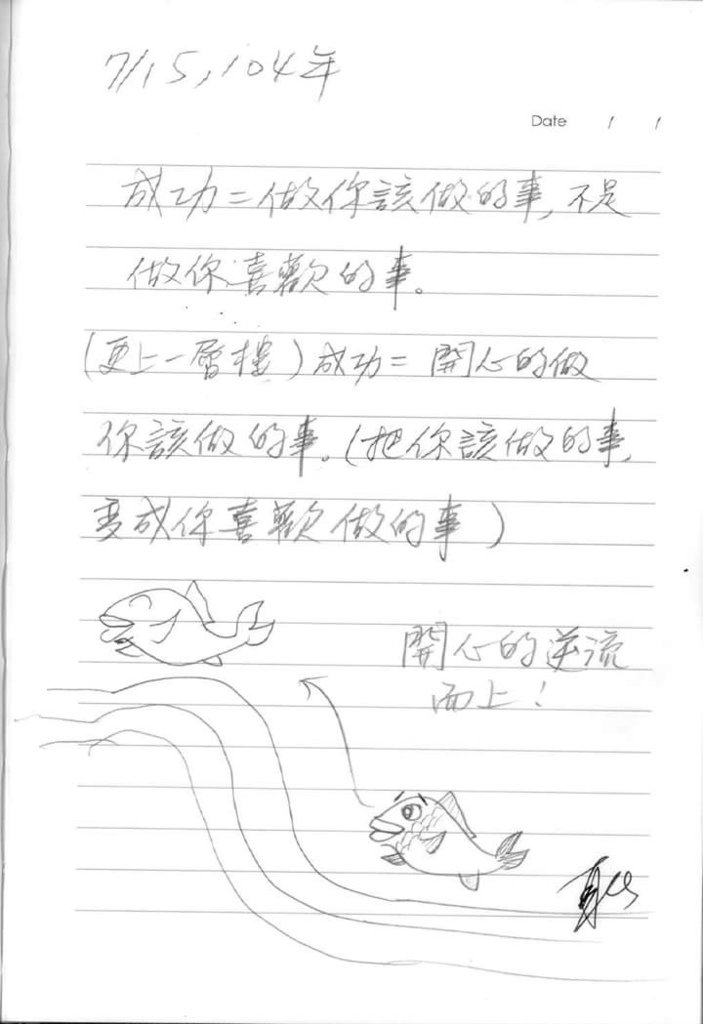 7/15, 104年
Date / /
成功=做你該做的事,不是
做你喜歡的事。
(更上一層樓)成功=開心的做
你該做的事。(把你該做的事,
變成你喜歡做的事)
開心的逆流
而上!